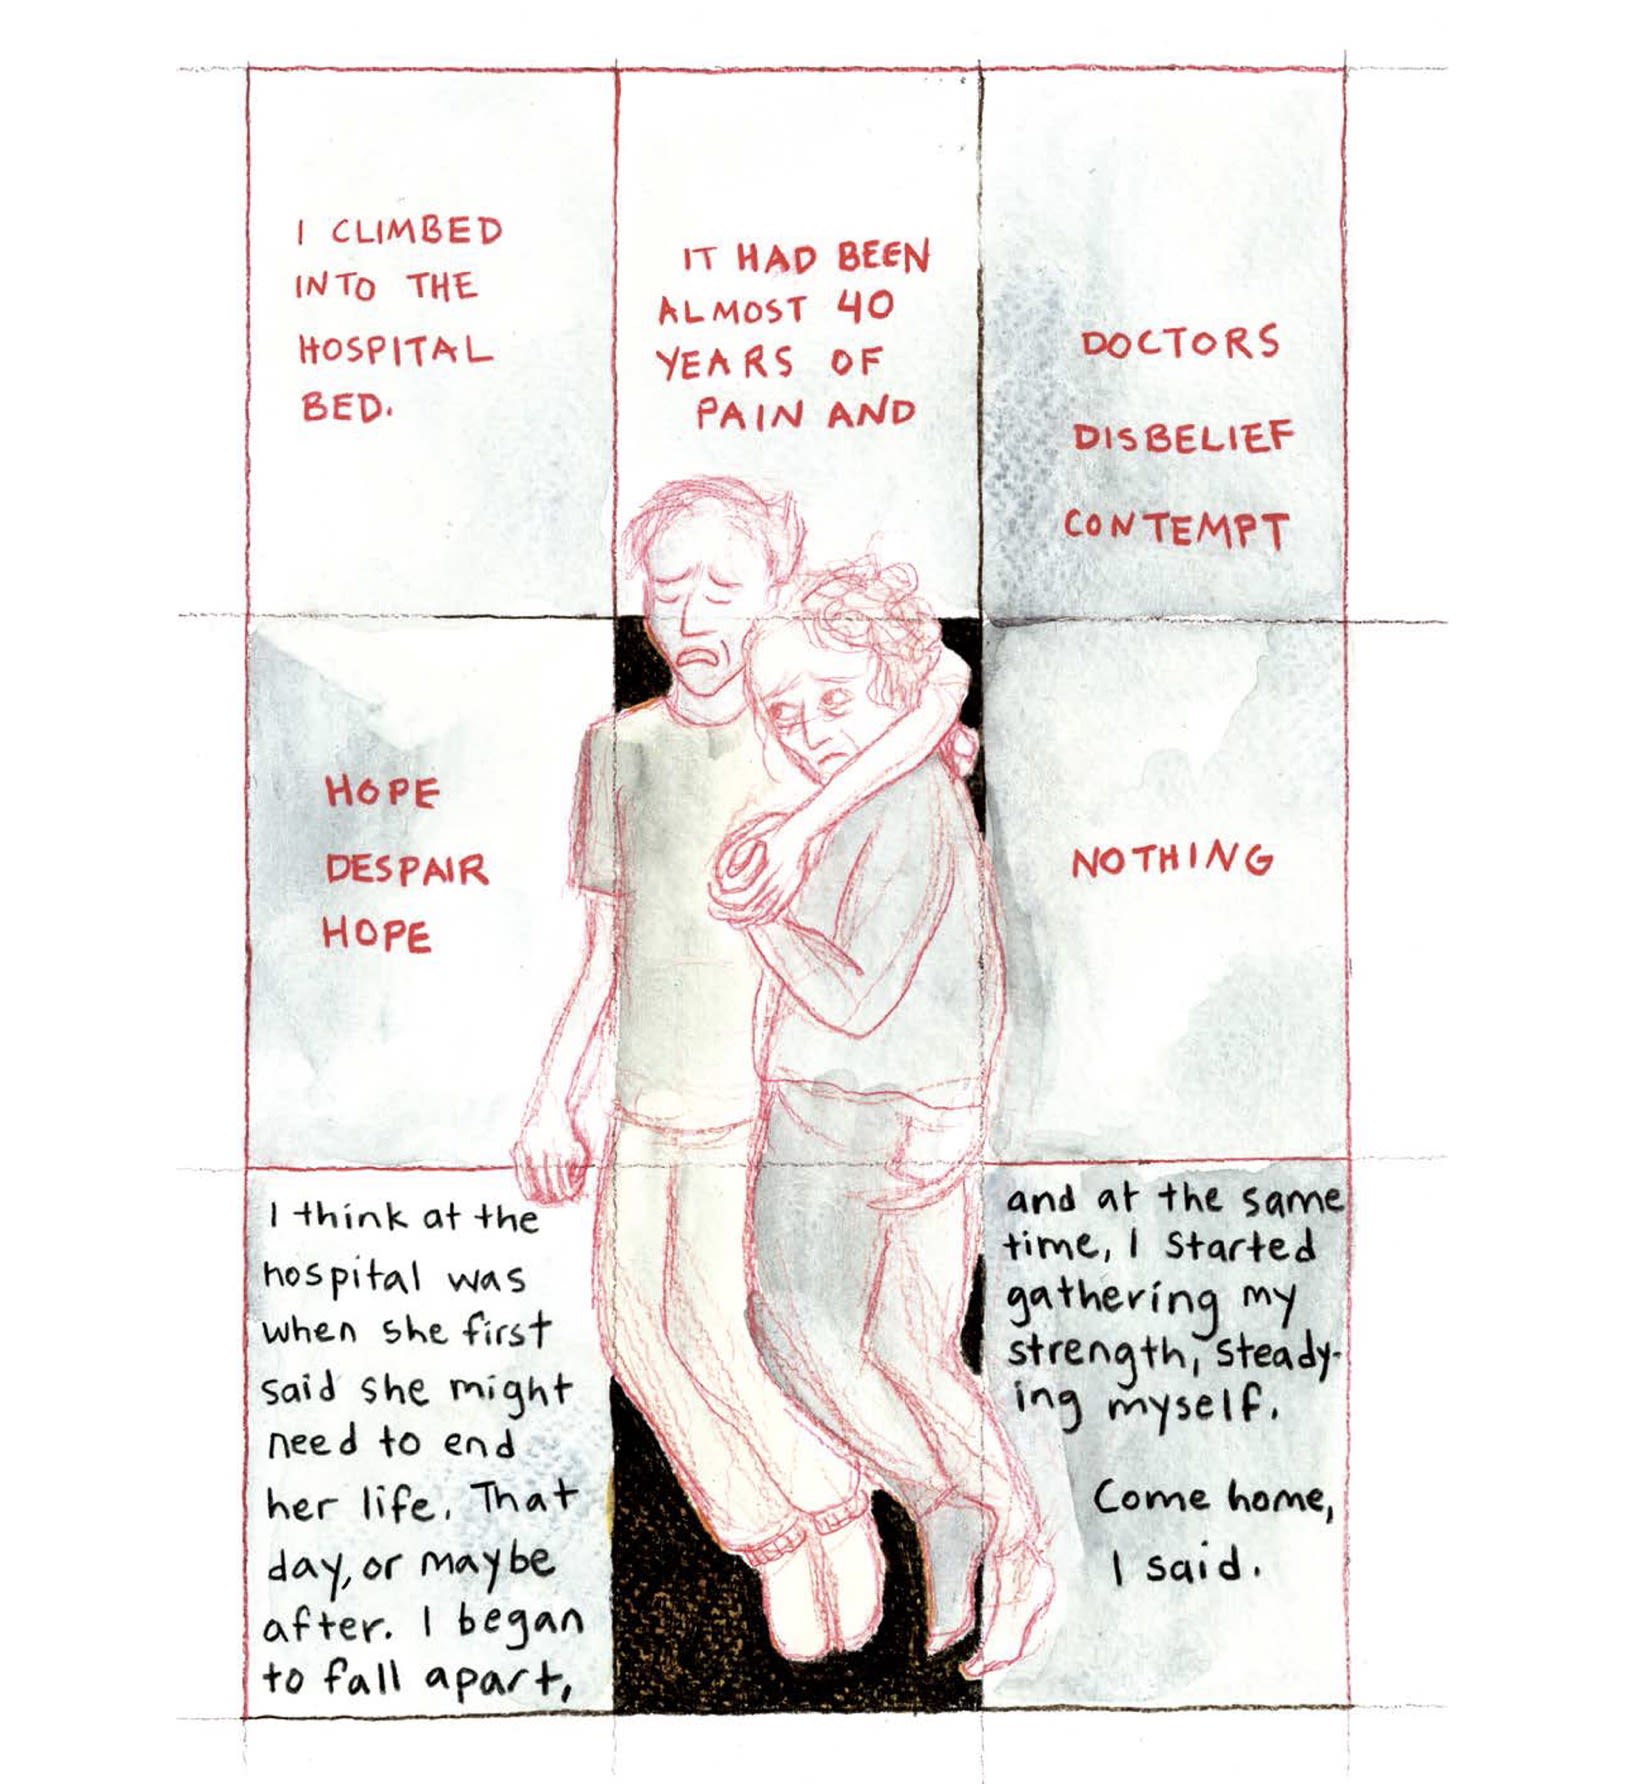 I CLIMBED
INTO THE
HOSPITAL
BED.
IT HAD BEEN
ALMOST 40
YEARS OF
PAIN AND
DOCTORS
DISBELIEF
CONTEMPT
HOPE
DESPAIR
HOPE
NOTHING
I think at the
hospital was
when she first
said she might
need to end
her life. That
day, or maybe
after. I began
to fall apart,
and at the same
time, I started
gathering my
strength, steady-
ing myself.
Come home,
I said.